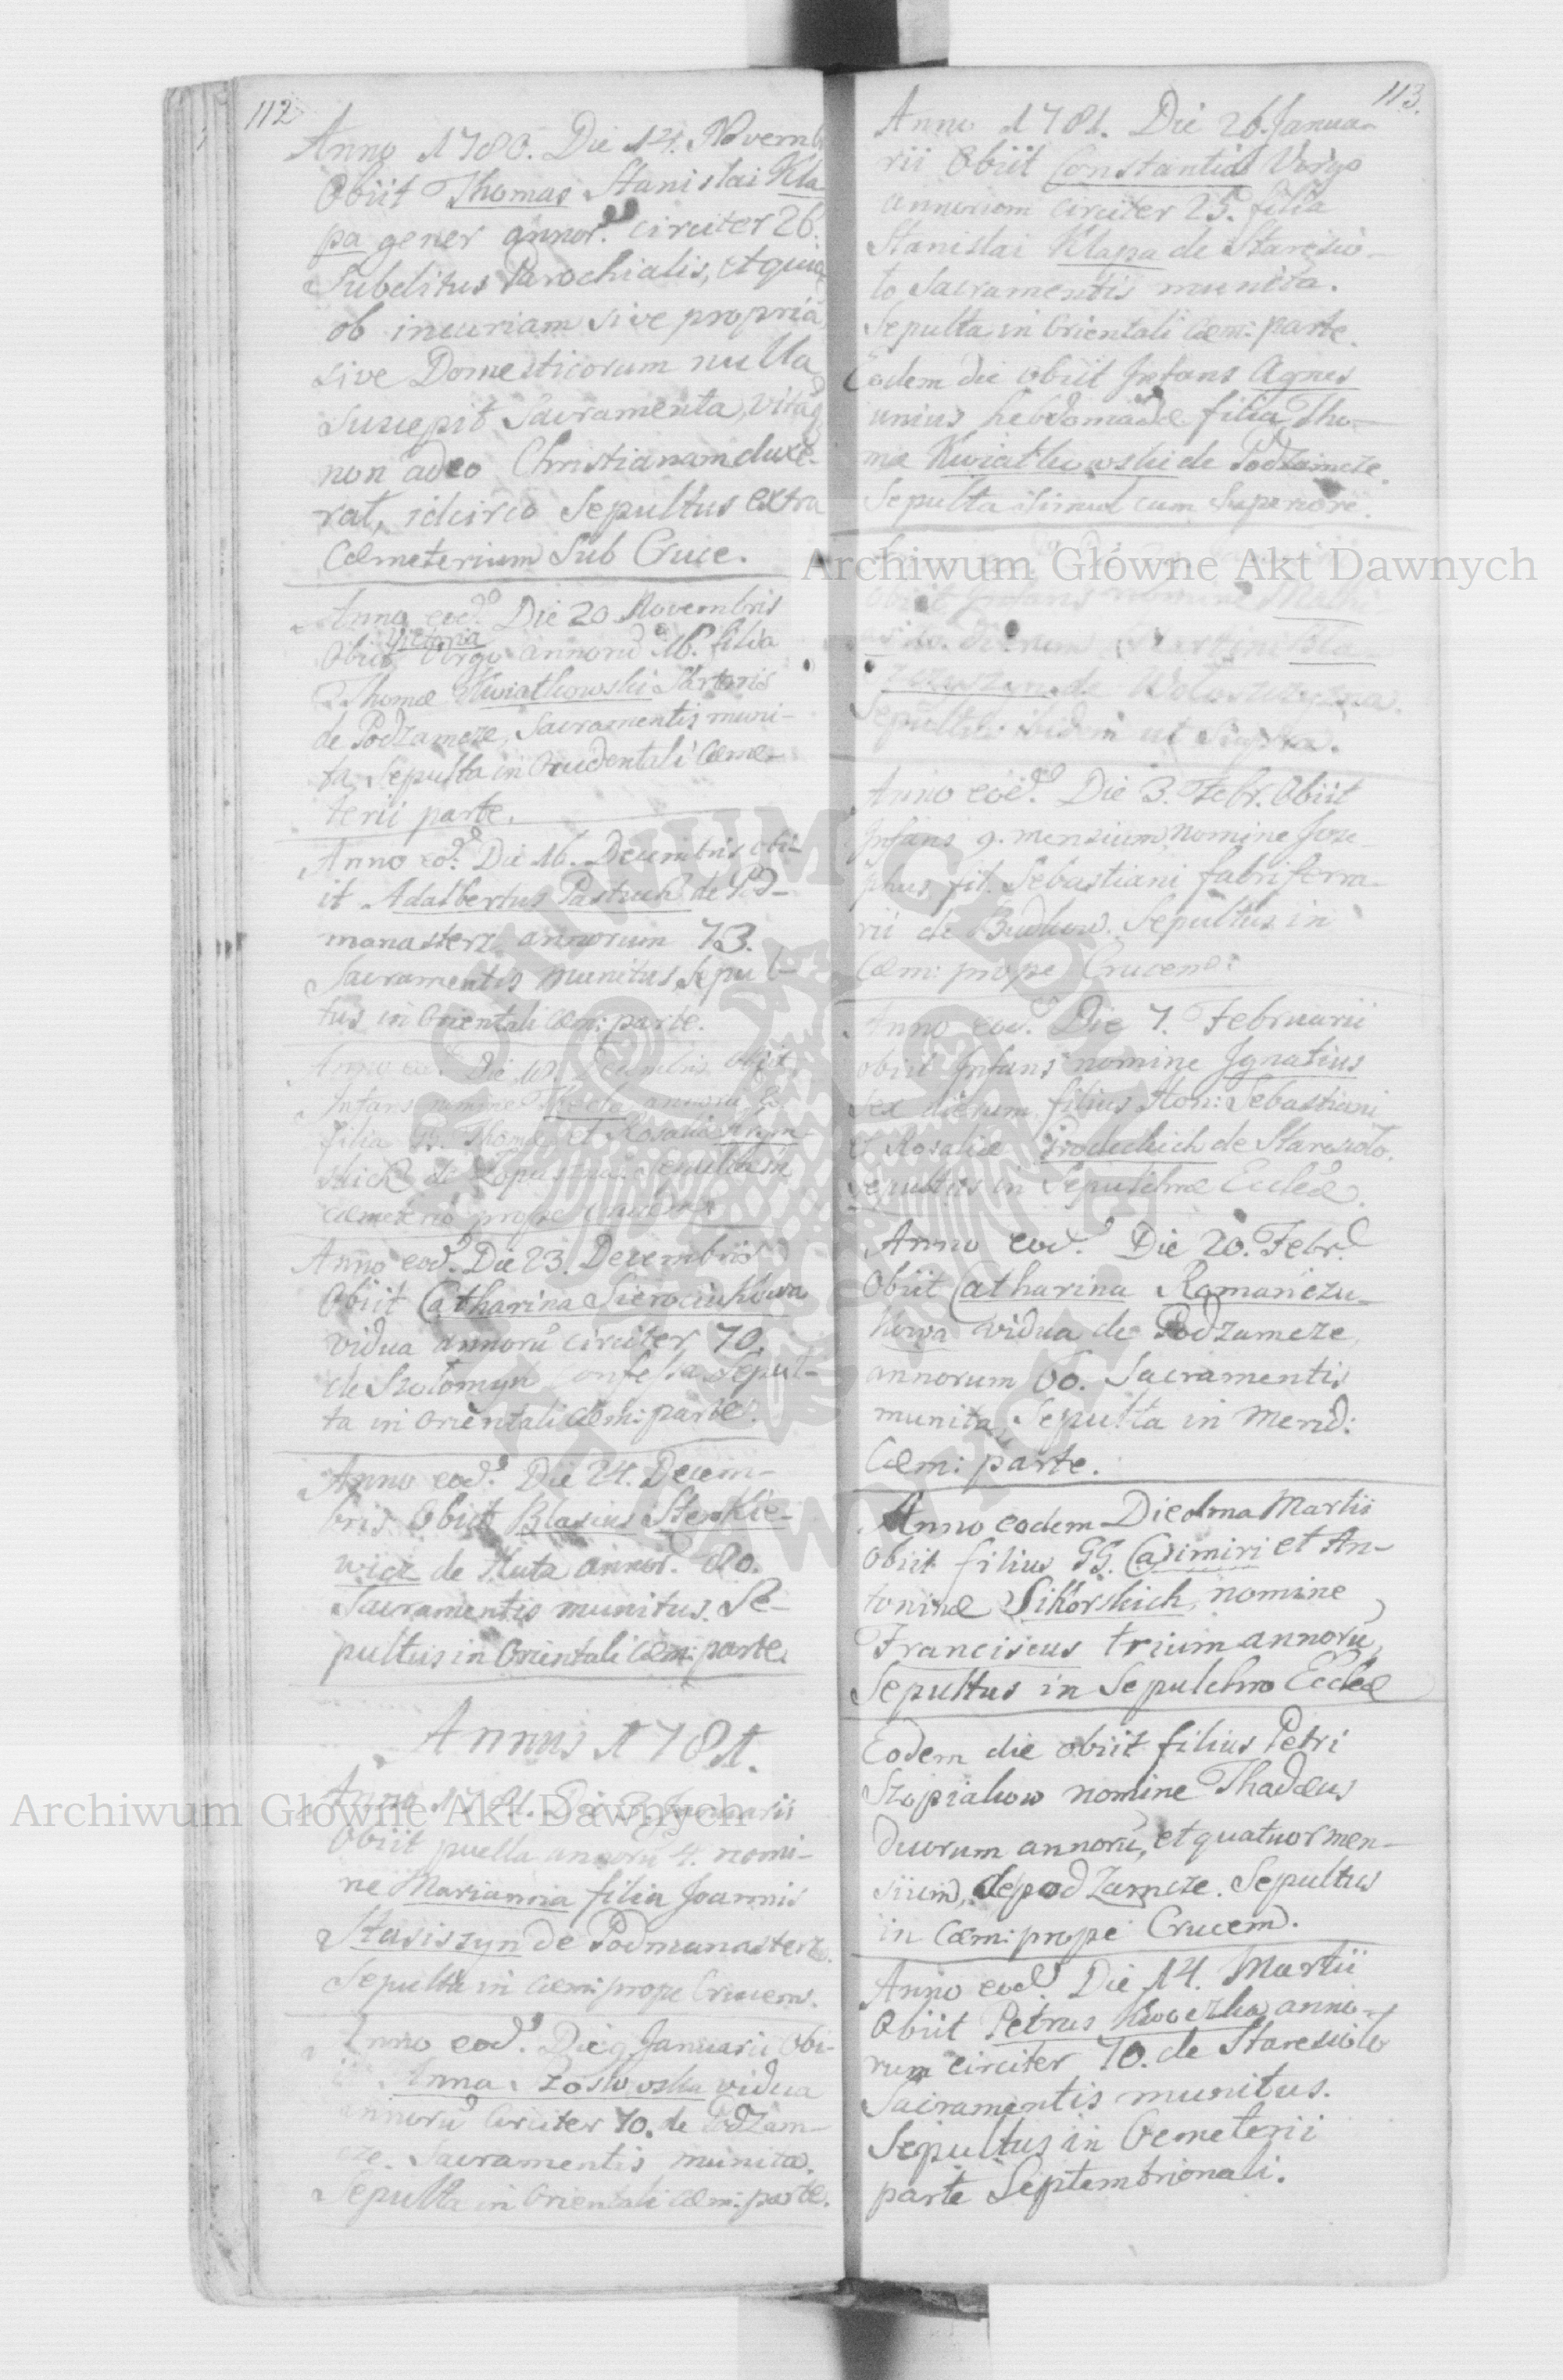 112
Anno 1780. Die 14. Novemb
Obiit Thomas Stanislai Kla
pa gener annor. circiter 26.
Subditus Parochialis, et quia
ob incuriam sive propria
sive Domesticorum nulla
suscepit Sacramenta, vitaq
non adeo Christianam duxe-
rat, idcirco Sepultus extra
Cæmeterium Sub Cruce.
Anno eod. Die 20 Novembris
Victoria
Obiit Virgo annorũ 16. filia
Thomæ Kwiatkowski Sartoris
de Podzamcze, Sacramentis muni-
ta, Sepulta in Occidentali Cæme-
terii parte.
Anno eod. Die 16. Decembris obi-
it Adalbertus Pastuch de Pod-
manasterz annorum 73.
Sacramentis munitus, Sepul-
tus in Orientali Cæm: parte.
Anno eod. Die Decembris obiit
Infans nomine annorũ
filia Thomæ et Rosaliæ
de Sepulta in
Cæmeterio prope
Anno eod. Die 23. Decembris
Obiit Catharina Sierociukowa
vidua annorũ circiter 70.
de Szotomyn confessa Sepul-
ta in Orientali Cæm: parte.
Anno eod. Die 24. Decem-
bris Obiit Blasius Stenkie-
wicz de Huta annor. 80.
Sacramentis munitus. Se-
pultus in Orientali Cæm: parte.
Annus 1781.
Anno 1781. Die 3. Januarii
Obiit puella annorũ 4. nomi-
ne Marianna filia Joannis
Stasiszyn de Podmanasterz.
Sepulta in Cæm: prope Crucem.
Anno eod. Die 9 Januarii Obi-
it Anna Zoslwska vidua
annorũ Circiter 70. de Podzam-
cze. Sacramentis munita.
Sepulta in Orientali Cæm: parte.
113.
Anno 1781. Die 26. Janua-
rii Obiit Constantia Virgo
annorum circiter 25. filia
Stanislai Klapa de Staresio-
lo Sacramentis munita.
Sepulta in Orientali Cæm: parte.
Eodem die obiit Infans Agnes
unius hebdomadæ filia Tho-
mæ Kwiatkowski de Podzamcze.
Sepulta simul cum Superiore.
Obiit Infans nomine
dierum Martini Bla
de Woloszczyzna.
Sepultus ibidem ut Supra.
Anno eod. Die 3. Febr. Obiit
Infans 9. mensium, nomine Jose-
phus, fil. Sebastiani fabri ferra-
rii de Budkow. Sepultus in
Cæm: prope Crucem.
Anno eod. Die 7. Februarii
obiit Infans nomine Ignatius
sex dierum, filius Hon: Sebastiani
et Rosaliæ de Staresiolo.
Sepultus in Sepulchro Ecclæ.
Anno eod. Die 20. Febr.
Obiit Catharina Romaniczu-
kowa vidua de Podzamcze,
annorum 60. Sacramentis
munita, Sepulta in Merid:
Cæm: parte.
Anno eodem Die dma Martii
Obiit filius GG. Casimiri et An-
toninæ Sikorskich, nomine
Franciscus trium annorũ,
Sepultus in Sepulchro Ecclæ
Eodem die obiit filius Petri
Szopiakow nomine Thadæus
duorum annorũ, et quatuor men-
sium, de pod Zamcze. Sepultus
in Cæm: prope Crucem.
Anno eod. Die 14. Martii
Obiit Petrus Kwoczka anno-
rum circiter 70. de Staresiolo
Sacramentis munitus.
Sepultus in Cemeterii
parte Septembrionali.
Archiwum Główne Akt Dawnych
Archiwum Główne Akt Dawnych
ARCHIWUM GŁÓWNE AKT DAWNYCH